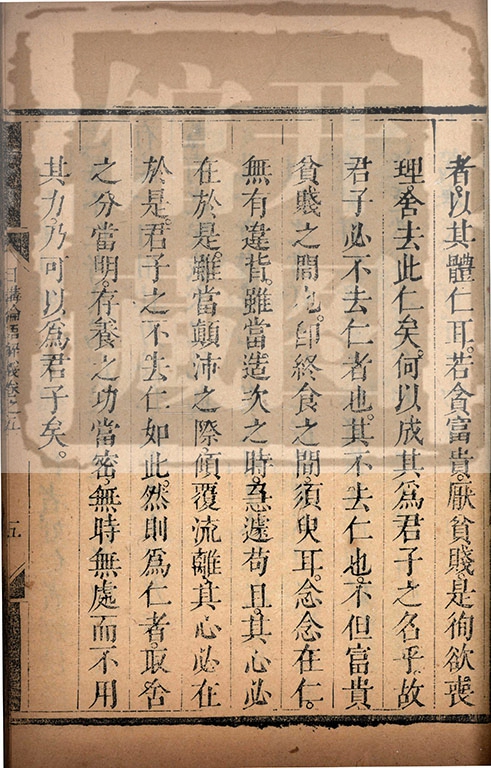 者。以其體仁耳。若貪富貴。厭貧賤。是徇欲喪
理。舍去此仁矣。何以成其爲君子之名乎。故
君子必不去仁者也。其不去仁也。不但富貴
貧賤之間也。卽終食之間。須臾耳。念念在仁。
無有違背。雖當造次之時。急遽苟且。其心必
在於是。雖當顛沛之際。傾覆流離。其心必在
於是。君子之不去仁如此。然則爲仁者。取舍
之分當明。存養之功當密。無時無處而不用
其力。乃可以爲君子矣。
日講論語解義卷之五
五